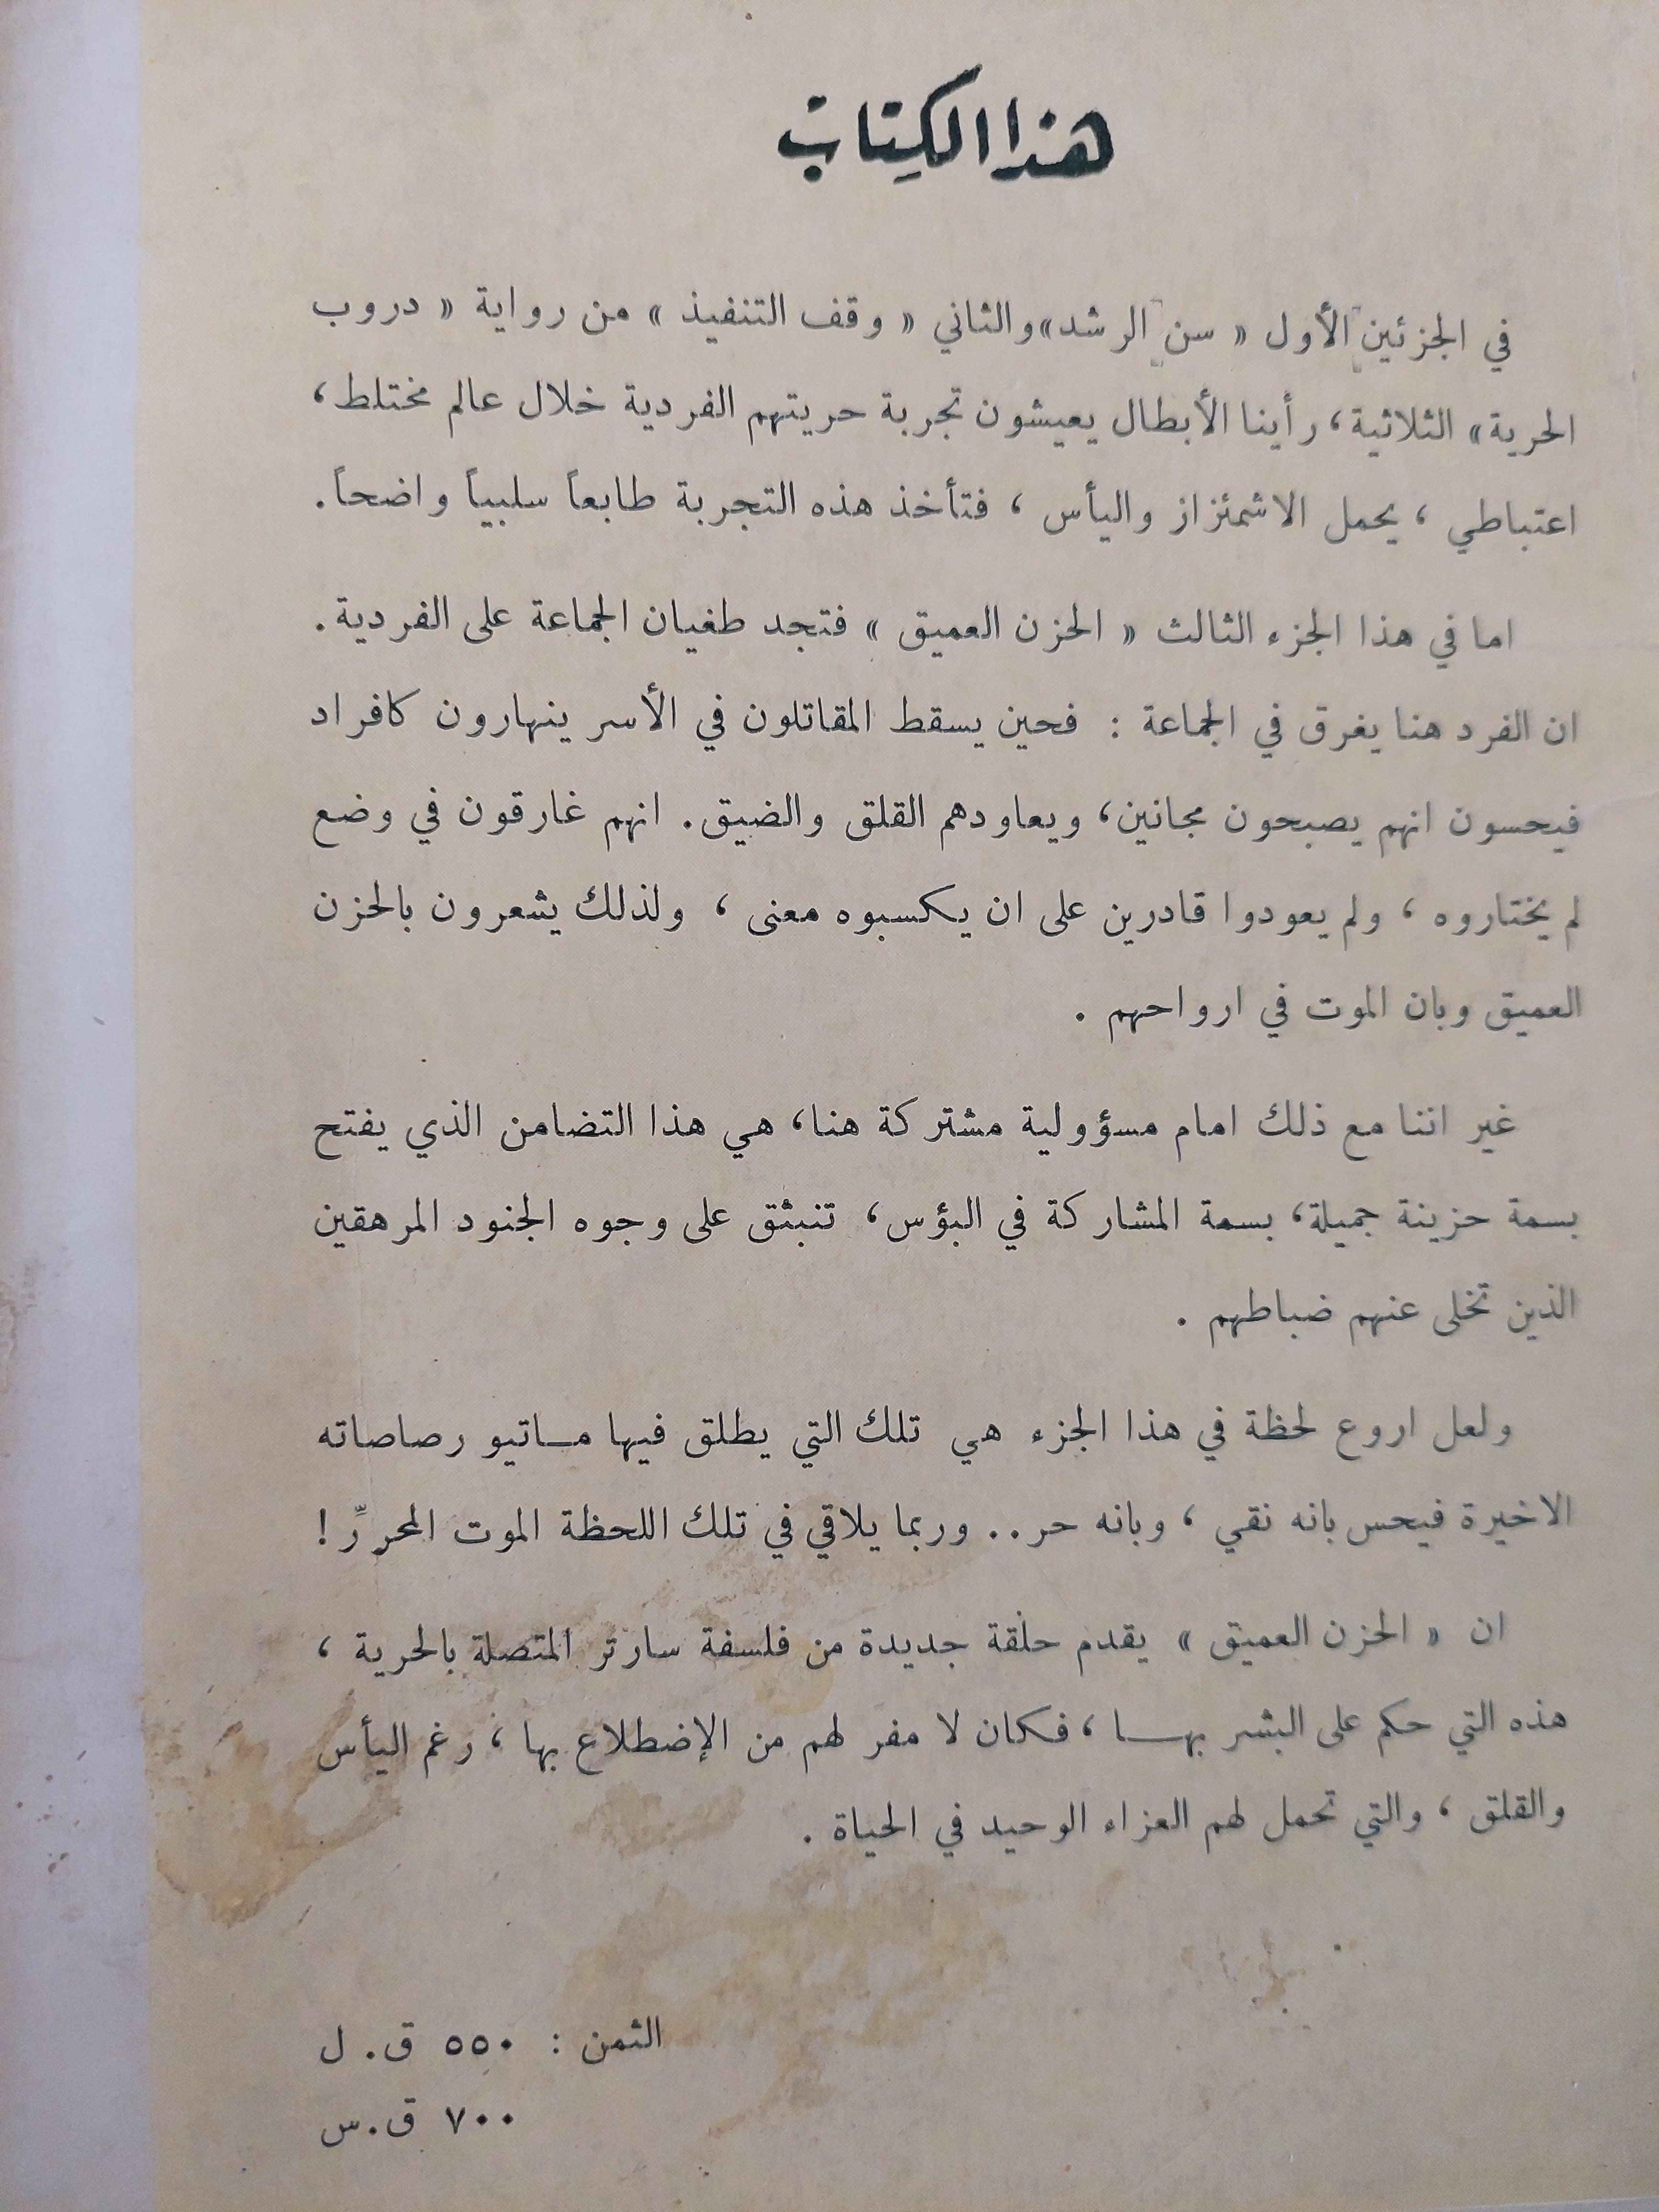 هذا الكِتاب
في الجزئين الأول « سن الرشد» والثاني « وقف التنفيذ » من رواية « دروب
الحرية» الثلاثية، رأينا الأبطال يعيشون تجربة حريتهم الفردية خلال عالم مختلط،
اعتباطي ، يحمل الاشمئزاز واليأس ، فتأخذ هذه التجربة طابعاً سلبياً واضحاً.
اما في هذا الجزء الثالث « الحزن العميق » فتجد طغيان الجماعة على الفردية.
ان الفرد هنا يغرق في الجماعة : فحين يسقط المقاتلون في الأسر ينهارون كافراد
فيحسون انهم يصبحون مجانين، ويعاودهم القلق والضيق. انهم غارقون في وضع
لم يختاروه ، ولم يعودوا قادرين على ان يكسبوه معنى ، ولذلك يشعرون بالحزن
العميق وبان الموت في ارواحهم .
غير اننا مع ذلك امام مسؤولية مشتركة هنا، هي هذا التضامن الذي يفتح
بسمة حزينة جميلة، بسمة المشاركة في البؤس، تنبثق على وجوه الجنود المرهقين
الذين تخلى عنهم ضباطهم .
ولعل اروع لحظة في هذا الجزء هي تلك التي يطلق فيها مـاتيو رصاصاته
الاخيرة فيحس بانه نقي ، وبانه حر .. وربما يلاقي في تلك اللحظة الموت المحررِّ !
ان « الحزن العميق » يقدم حلقة جديدة من فلسفة سارتر المتصلة بالحرية ،
هذه التي حكم على البشر بهـا ، فكان لا مفر لهم من الإضطلاع بها ، رغم اليأس
والقلق ، والتي تحمل لهم العزاء الوحيد في الحياة .
الثمن : ٥٥٠ ق. ل
٧٠٠ ق.س